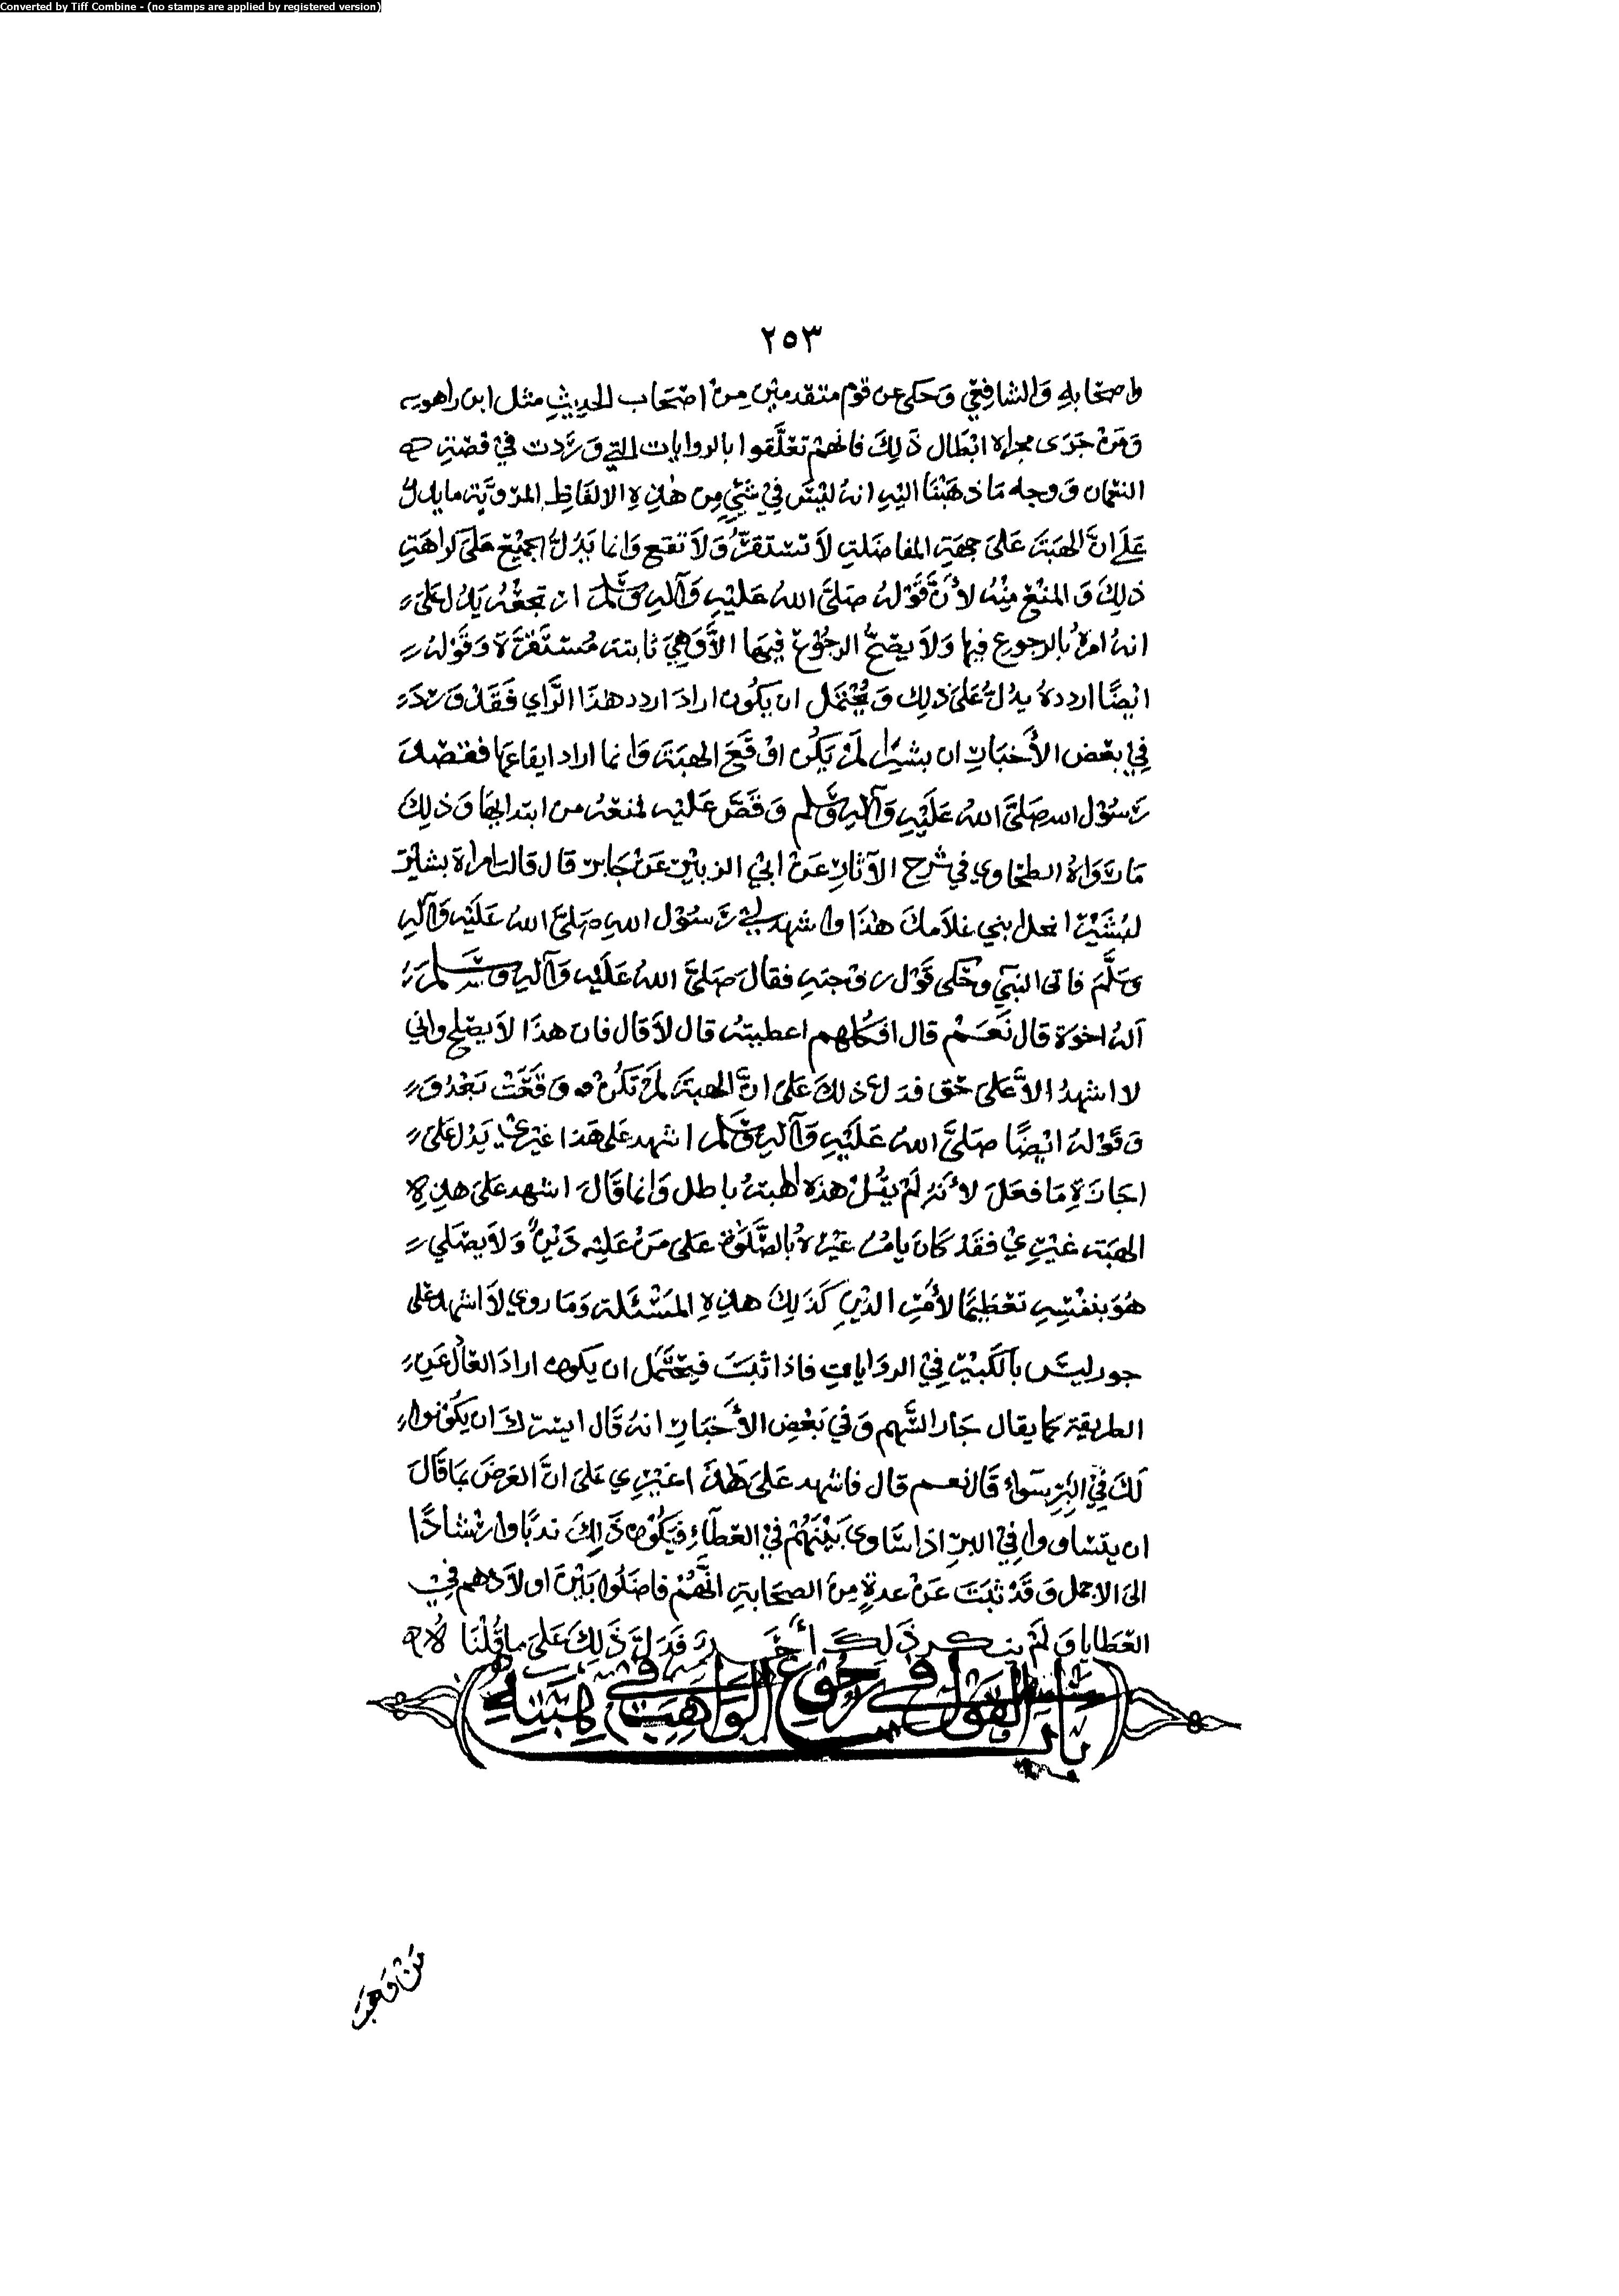 Converted by Tiff Combine - (no stamps are applied by registered version)
٢٥٣
واصحابه والشافعي وحكى عن قوم متقدمين من اصحاب الحديث مثل ابن راهويه
ومن جرى مجراه ابطال ذلك فانهم تعلقوا بالروايات التي وردت في قصة
النعمان ووجه ما ذهبنا اليه انه ليس في شيء من هذه الالفاظ المروية ما يدل
على ان الهبة على جهة المفاضلة لا تستقر ولا تقع وانما يدل الجميع على كراهة
ذلك والمنع منه لأن قوله صلى الله عليه وآله وسلم ارتجعه يدل على
انه امره بالرجوع فيها ولا يصح الرجوع فيها الا وهي ثابتة مستقرة وقوله
ايضًا اردده يدل على ذلك ويحتمل ان يكون اراد اردد هذا الرأي فقد ورد
في بعض الأخبار ان بشيرا لم يكن اوقع الهبة وانما اراد ايقاعها فقصد
رسول الله صلى الله عليه وآله وسلم وقص عليه لمنعه من ابتدائها وذلك
ما رواه الطحاوي في شرح الآثار عن ابي الزبير عن جابر قال قالت امراة بشير
لبشير انحل ابني غلامك هذا واشهد لي رسول الله صلى الله عليه وآله
وسلم فاتى النبي وحكى قول زوجته فقال صلى الله عليه وآله وسلم
أله اخوة قال نعم قال افكلهم اعطيته قال لا قال فان هذا لا يصلح واني
لا اشهد الا على حق فدل ذلك على ان الهبة لم تكن وقعت بعد و
وقوله ايضًا صلى الله عليه وآله وسلم اشهد على هذا غيري يدل على
اجازة ما فعل لأنه لم يقل هذه الهبة باطل وانما قال اشهد على هذه
الهبة غيري فقد كان يامر غيره بالصلوة على من عليه دين ولا يصلي
هو بنفسه تعظيمًا لأمر الدين كذلك هذه المسئلة وما روي لا اشهد على
جور ليس بالكبير في الروايات فاذا ثبت فيحتمل ان يكون اراد العال عن
الطريقة كما يقال جار السهم وفي بعض الأخبار انه قال ايسرك ان يكونوا
لك في البر سواء قال نعم قال فاشهد على هذا غيري على ان الغرض بما قال
ان يتساووا في البر اذا ساوى بينهم في العطاء فيكون ذلك ندبًا وارشادًا
الى الاجمل وقد ثبت عن عدة من الصحابة انهم فاضلوا بين اولادهم في
العطايا ولم ينكر ذلك أحد فدل ذلك على ما قلنا
باب القول في رجوع الواهب في هبته
من وهب